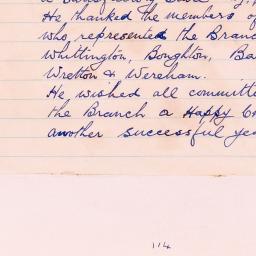 He thanked the members o
who, represented the Branc
Whittington, Boughton, Ba
Wretton & Wereham.
He wished all committe
the Branch a Happy C
another successful ye
114